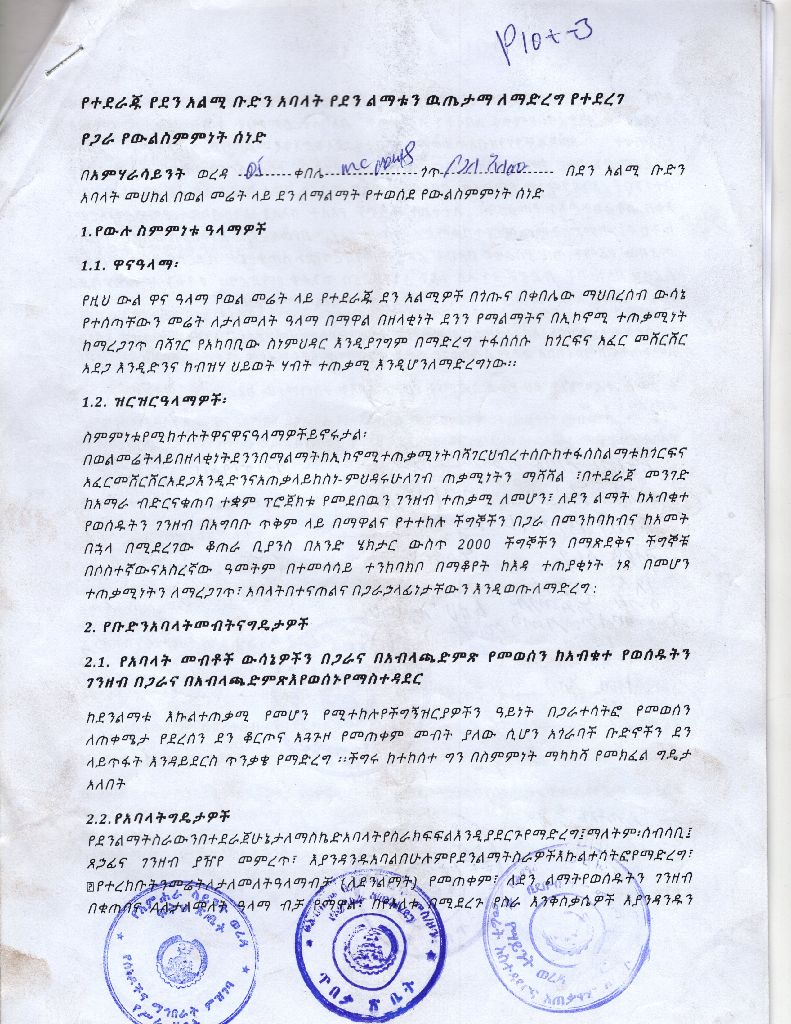 P10+-3
የተደራጁ የደን አልሚ ቡድን አባላት የደን ልማቱን ዉጤታማ ለማድረግ የተደረገ
የጋራ የውልስምምነት ሰነድ
በአምሃራሳይንት ወረዳ 01 ቀበሌ ጎጥ በደን አልሚ ቡድን
አባላት መሀከል በወል መሬት ላይ ደን ለማልማት የተወሰደ የውልስምምነት ሰነድ
1.የውሉ ስምምነቱ ዓላማዎች
1.1. ዋናዓላማ፡
የዚህ ውል ዋና ዓላማ የወል መሬት ላይ የተደራጁ ደን አልሚዎች በጎጡና በቀበሌው ማህበረሰብ ውሳኔ
የተሰጣቸውን መሬት ለታለመለት ዓላማ በማዋል በዘላቂነት ደንን የማልማትና በኢኮኖሚ ተጠቃሚነት
ከማረጋገጥ ባሻገር የአካባቢው ስነምህዳር እንዲያገግም በማድረግ ተፋሰሱ ከጎርፍና አፈር መሸርሸር
አደጋ እንዲድንና ከብዝሃ ህይወት ሃብት ተጠቃሚ እንዲሆንለማድረግነው፡፡
1.2. ዝርዝርዓላማዎች፡
ስምምነቱየሚከተሉትዋናዋናዓላማዎችይኖሩታል፡
በወልመሬትላይበዘላቂነትደንንበማልማትከኢኮኖሚተጠቃሚነትባሻገርህብረተሰቡከተፋሰስልማቱከጎርፍና
አፈርመሸርሸርአደጋእንዲድንናአጠቃላይከስነ-ምህዳሩሁለገብ ጠቃሚነትን ማሻሻል ፤በተደራጀ መንገድ
ከአማራ ብድርናቁጠባ ተቋም ፕሮጀክቱ የመደበዉን ገንዘብ ተጠቃሚ ለመሆን፣ ለደን ልማት ከአብቁተ
የወሰዱትን ገንዘብ በአግባቡ ጥቅም ላይ በማዋልና የተተከሉ ችግኞችን በጋራ በመንከባከብና ከአመት
በኋላ በሚደረገው ቆጠራ ቢያንስ በአንድ ሄክታር ውስጥ 2000 ችግኞችን በማጽደቅና ችግኞቹ
በሶስተኛውናአስረኛው ዓመትም በተመሳሳይ ተንከባክቦ በማቆየት ከእዳ ተጠያቂነት ነጻ በመሆን
ተጠቃሚነትን ለማረጋገጥ፣ አባላትበተናጠልና በጋራኃላፊነታቸውን እንዲወጡለማድረግ፡
2. የቡድንአባላትመብትናግዴታዎች
2.1. የአባላት መብቶች ውሳኔዎችን በጋራና በአብላጫድምጽ የመወሰን ከአብቁተ የወሰዱትን
ገንዘብ በጋራና በአብላጫድምጽእየወሰኑየማስተዳደር
ከደንልማቱ እኩልተጠቃሚ የመሆን የሚተከሉየችግኝዝርያዎችን ዓይነት በጋራተሳትፎ የመወሰን
ለጠቀሜታ የደረሰን ደን ቆርጦና አጓጉዞ የመጠቀም መብት ያለው ሲሆን አጎራባች ቡድኖችን ደን
ላይጥፋት እንዳይደርስ ጥንቃቄ የማድረግ ፡፡ችግሩ ከተከሰተ ግን በስምምነት ማካካሻ የመክፈል ግዴታ
አለበት
2.2.የአባላትግዴታዎች
የደንልማትስራውንበተደራጀሁኔታለማስኬድአባላትየስራክፍፍልእንዲያደርጉየማድረግ፤ማለትም፡ሰብሳቢ፤
ጸኃፊና ገንዘብ ያዥየ መምረጥ፣ እያንዳንዱአባልበሁሉምየደንልማትስራዎችእኩልተሳትፎየማድረግ፣
የተረከቡትንመሬትለታለመለትዓላማብቻ (ለደንልማት) የመጠቀም፣ ለደን ልማትየወሰዱትን ገንዘብ
በቁጠባና ለታለመለት ዓላማ ብቻ የማዋል፣ በየእለቱ በሚደረጉ የስራ እንቅስቃሴዎች እያንዳንዱን
ጥበቃ ጽ ቤት